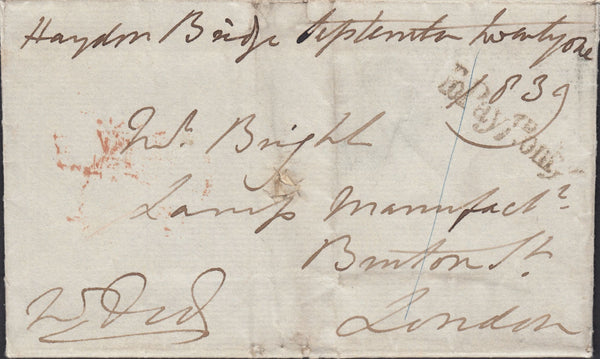 Haydon Bridge September twenty one
1839
To Pay 1d. only
Mr. Bright
Lamp Manufactr.
Bruton St.
London